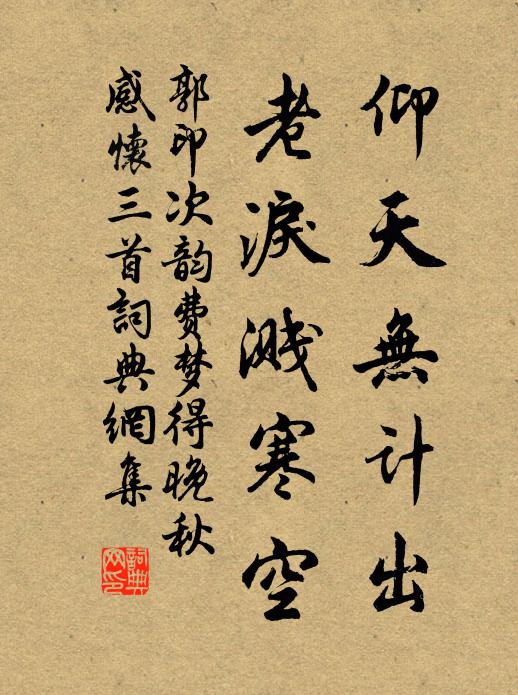 仰天無計出
老淚濺寒空
郭印次韵費梦得晚秋
感懷三首詞典網集
詞典網印